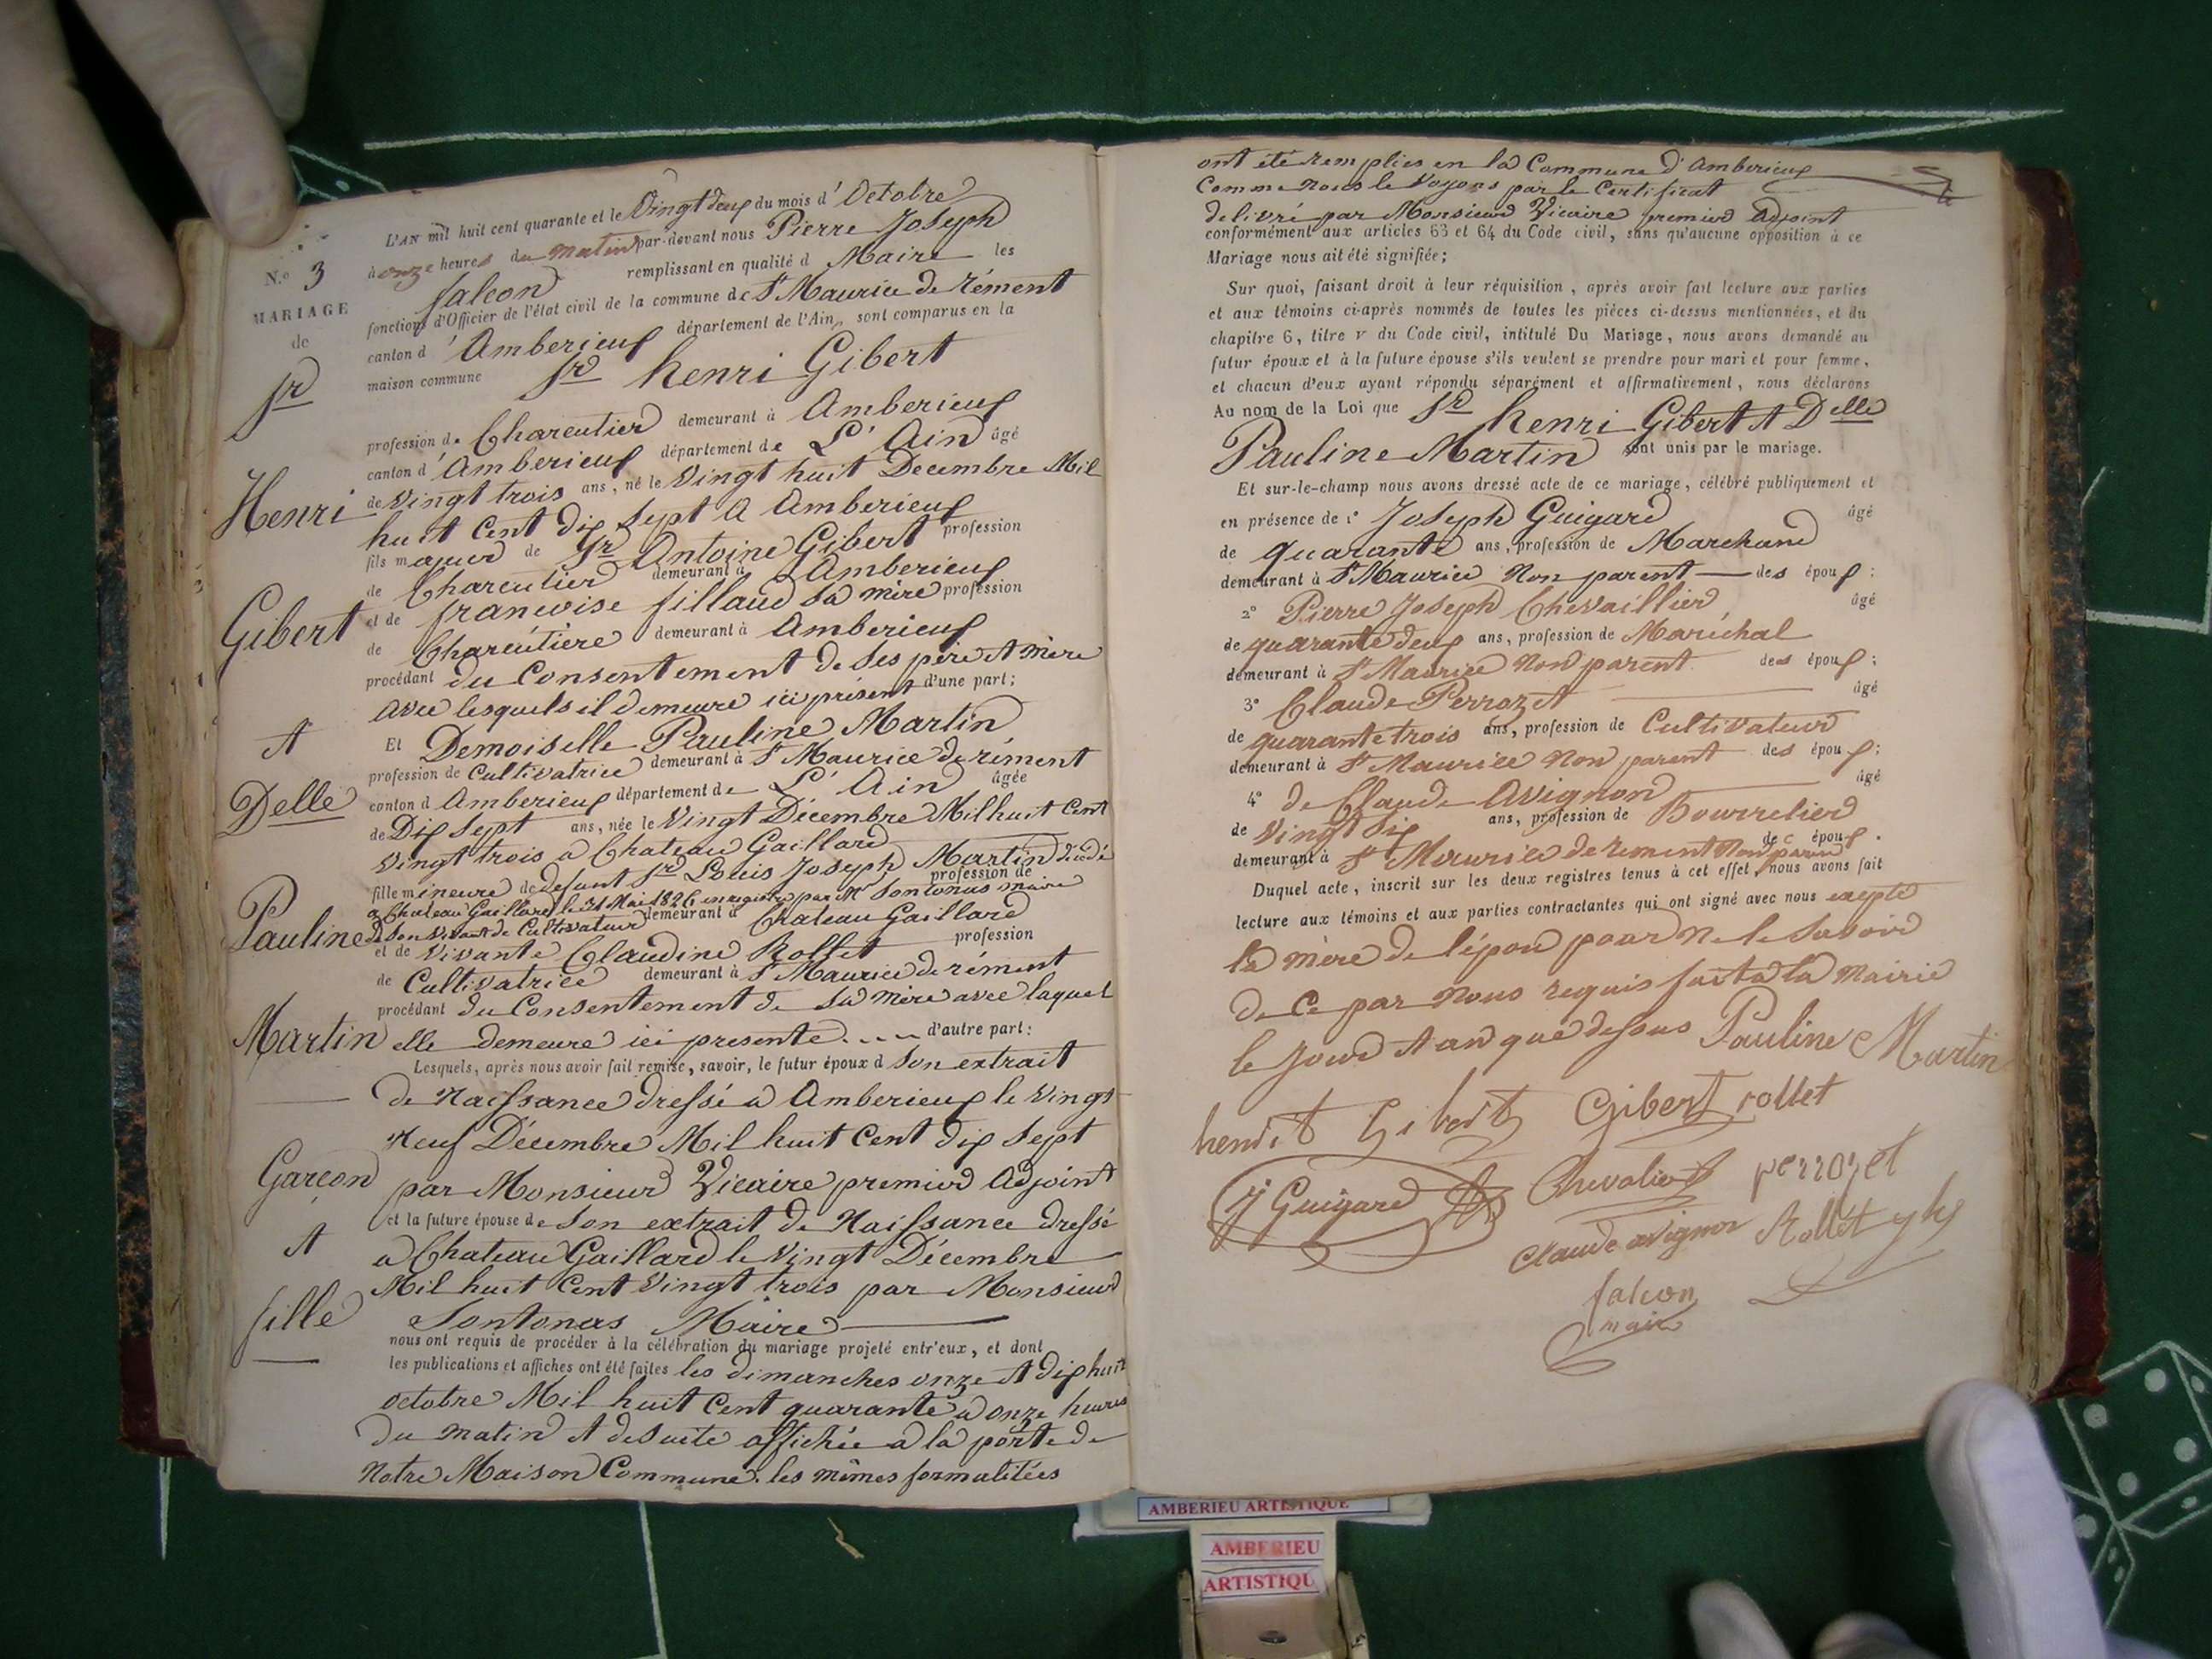 N.o 3
MARIAGE
de
Sr
Henri
Gibert
et
Delle
Pauline
Martin
Garçon
et
fille
L'AN mil huit cent quarante et le Vingt deux du mois d'Octobre
à onze heures du matin par-devant nous Pierre Joseph
falcon remplissant en qualité d Maire les
fonctions d'Officier de l'état civil de la commune de St Maurice de Rément
canton d'Amberieux département de l'Ain, sont comparus en la
maison commune Sr henri Gibert
profession de Chareutier demeurant à Amberieux
canton d'Amberieux département de L'Ain âgé
de Vingt trois ans, né le Vingt huit Decembre Mil
huit Cent dix Sept a Amberieux
fils majeur de Sr Antoine Gibert profession
de Chareutier demeurant à Amberieux
et de francoise fillaud sa mère profession
de Chareutière demeurant à Amberieux
procédant du Consentement de Ses père et mère
avec lesquels il demeure ici présent d'une part;
Et Demoiselle Pauline Martin
profession de Cultivatrice demeurant à St Maurice de rément
canton d Amberieux département de L'Ain âgée
de Dix Sept ans, née le Vingt Décembre Mil huit Cent
Vingt trois a Chateau Gaillard
fille mineure de defunt Sr Louis Joseph Martin décédé profession de
a Chateau Gaillard le 31 Mai 1826 enregistré par Mr Sontonas maire
de Son Vivant de Cultivateur demeurant à Chateau Gaillard
et de Vivante Claudine Rollet profession
de Cultivatrice demeurant à St Maurice de rément
procédant du Consentement de Sa mère avec laquel
elle demeure ici presente d'autre part:
Lesquels, après nous avoir fait remise, savoir, le futur époux d Son extrait
de Naissance dressé a Amberieux le Vingt
Neuf Décembre Mil huit Cent dix Sept
par Monsieur Vicaire premier Adjoint
et la future épouse de Son extrait de Naissance dressé
a Chateau Gaillard le Vingt Décembre
Mil huit Cent Vingt trois par Monsieur
Sontonas Maire
nous ont requis de procéder à la célébration du mariage projeté entr'eux, et dont
les publications et affiches ont été faites les dimanches onze et dix huit
octobre Mil huit Cent quarante a onze heures
du matin et de Suite affichée a la porte de
Notre Maison Commune. les mêmes formalitées
ont été remplies en la Commune d'Amberieux
Comme nous le Voyons par le Certificat
delivré par Monsieur Vicaire premier Adjoint
conformément aux articles 63 et 64 du Code civil, sans qu'aucune opposition à ce
Mariage nous ait été signifiée;
Sur quoi, faisant droit à leur réquisition, après avoir fait lecture aux parties
et aux témoins ci-après nommés de toutes les pièces ci-dessus mentionnées, et du
chapitre 6, titre v du Code civil, intitulé Du Mariage, nous avons demandé au
futur époux et à la future épouse s'ils veulent se prendre pour mari et pour femme,
et chacun d'eux ayant répondu séparément et affirmativement, nous déclarons
Au nom de la Loi que Sr henri Gibert et Delle
Pauline Martin sont unis par le mariage.
Et sur-le-champ nous avons dressé acte de ce mariage, célébré publiquement et
en présence de 1° Joseph Guigard âgé
de quarante ans, profession de Marchand
demeurant à St Maurice Non parent des époux:
2° Pierre Joseph Chevaillier, âgé
de quarante deux ans, profession de Maréchal
demeurant à St Maurice Non parent des époux;
3° Claude Perrozet âgé
de quarante trois ans, profession de Cultivateur
demeurant à St Maurice Non parent des époux;
4° de Claude Avignon âgé
de Vingt Six ans, profession de Bourrelier
demeurant à St Maurice de rement Non parent des époux.
Duquel acte, inscrit sur les deux registres tenus à cet effet, nous avons fait
lecture aux témoins et aux parties contractantes qui ont signé avec nous excepté
la mère de l'époux pour ne le Savoir
de Ce par Nous requis fait a la Mairie
le Jour et an que dessus Pauline Martin
henri Gibert Gibert rollet
J Guigard Chevalier perrozet
Claude avignon Rollét
falcon
maire
AMBERIEU ARTISTIQUE
AMBERIEU
ARTISTIQU